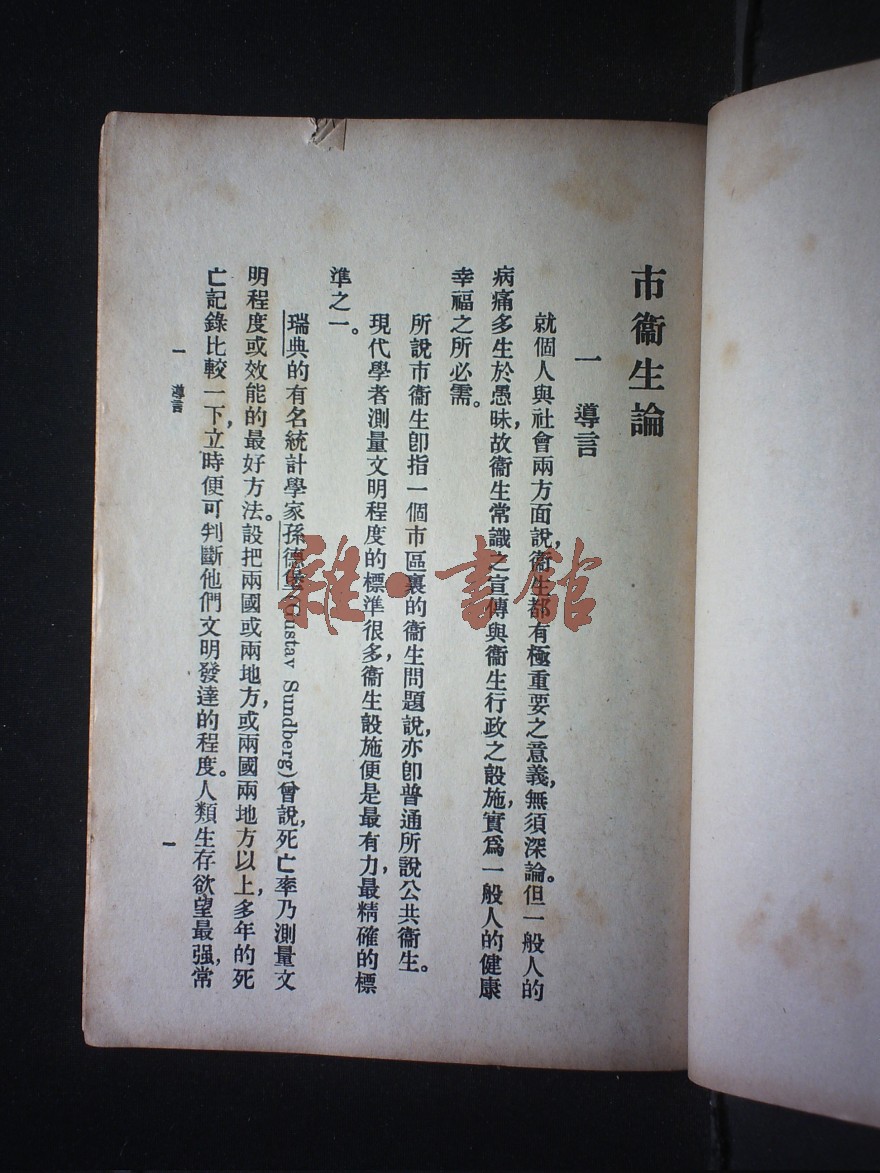 市衞生論
一　導言
就個人與社會兩方面說，衞生都有極重要之意義，無須深論。但一般人的
病痛多生於愚昧，故衞生常識之宣傳與衞生行政之設施，實爲一般人的健康
幸福之所必需。
所說市衞生卽指一個市區裏的衞生問題說，亦卽普通所說公共衞生。
現代學者測量文明程度的標準很多，衞生設施便是最有力，最精確的標
準之一。
瑞典的有名統計學家孫德堡(Gustav Sundberg)曾說，死亡率乃測量文
明程度或效能的最好方法。設把兩國或兩地方，或兩國兩地方以上，多年的死
亡記錄比較一下，立時便可判斷他們文明發達的程度。人類生存欲望最强，常
一　導言
一
雜·書館